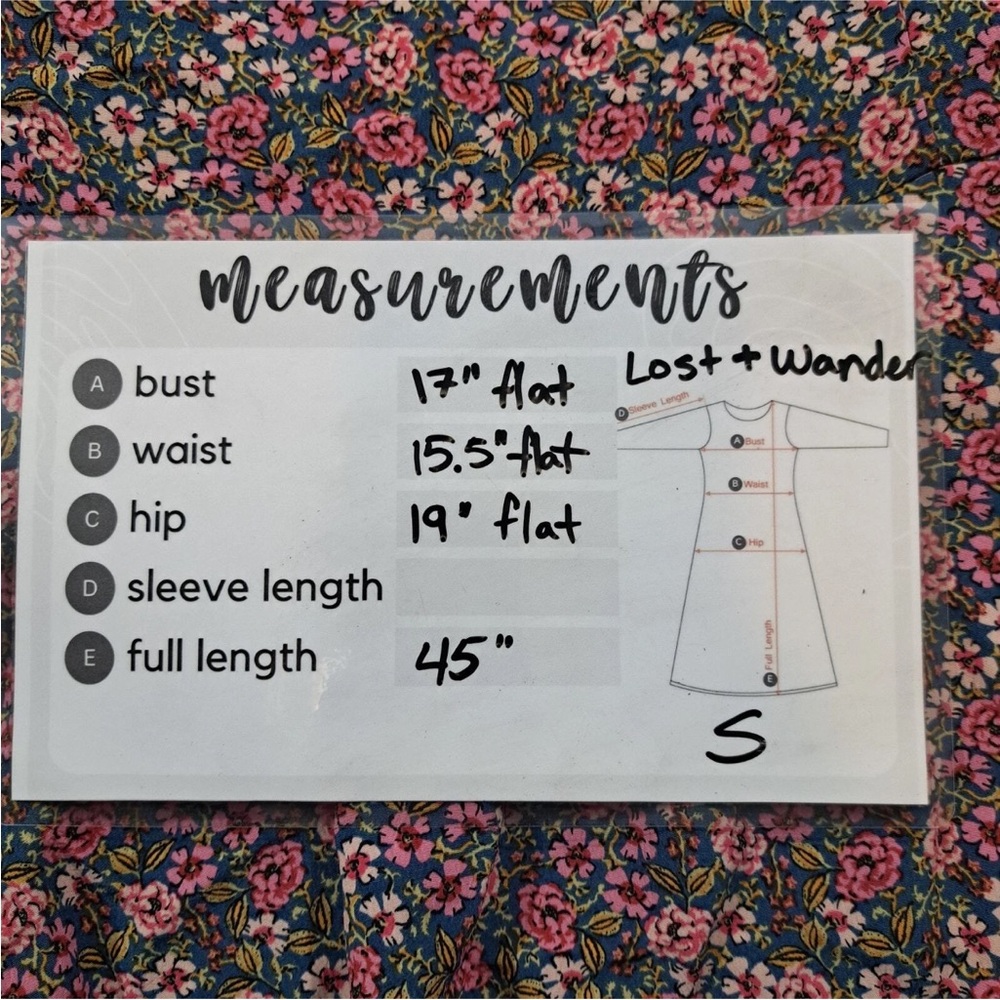 measurements
Lost + Wander
A bust 17" flat
B waist 15.5" flat
C hip 19" flat
D sleeve length
E full length 45"
D Sleeve Length
A Bust
B Waist
C Hip
E Full Length
S